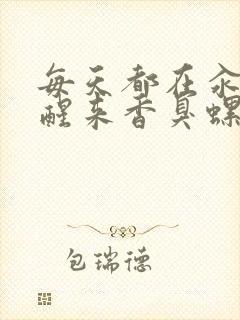 每天都在汆
醒来香臭螺
包瑞德